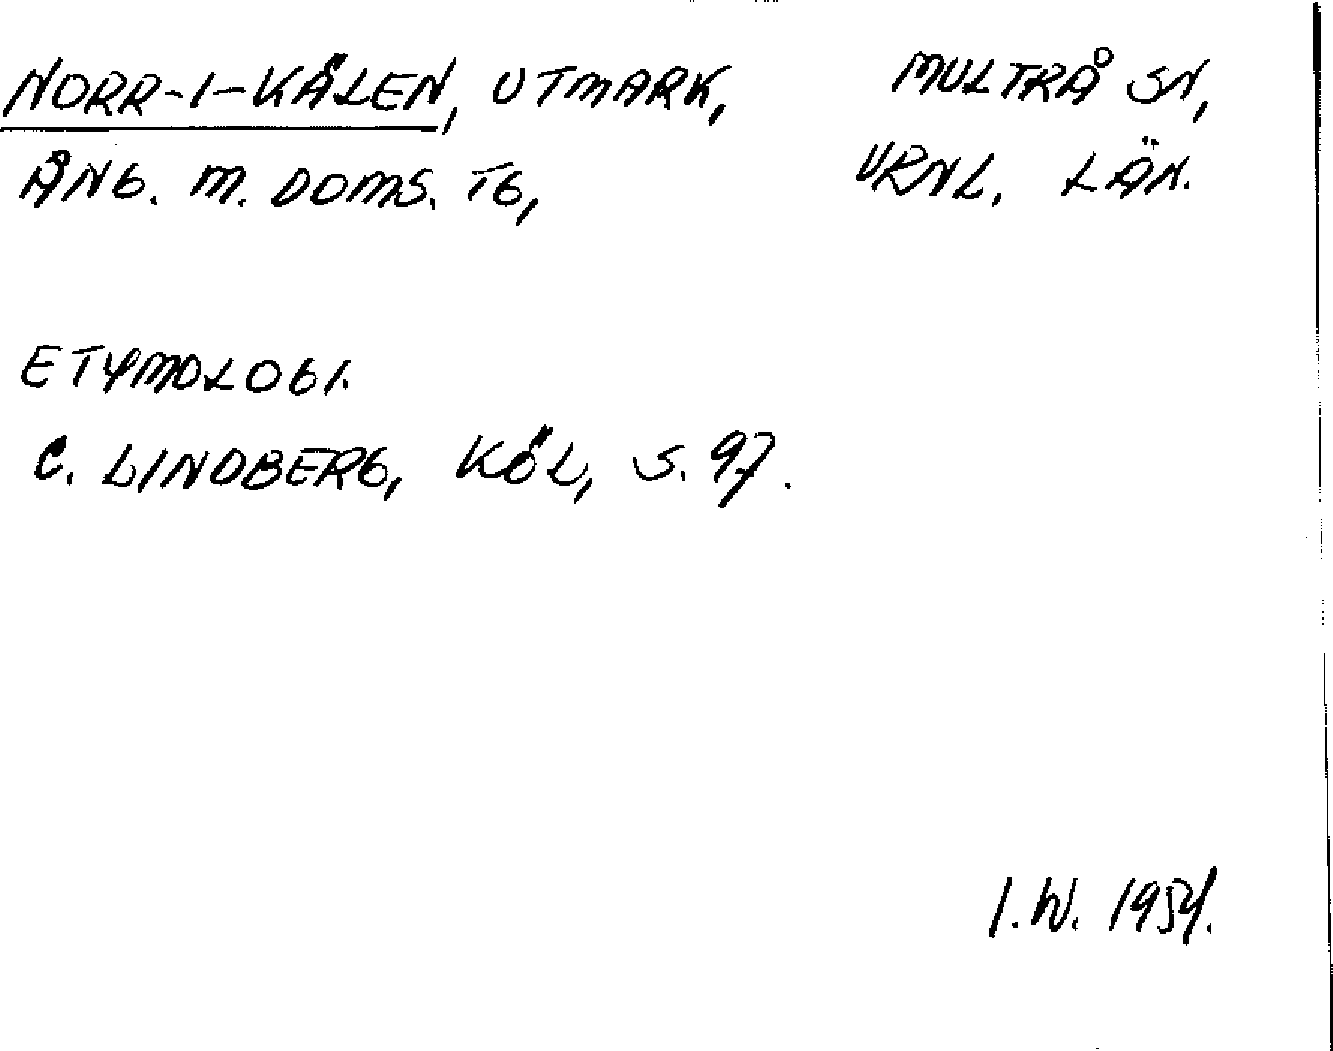 NORR-I-KÅLEN, UTMARK, MULTRÅ SN,
ÅNG. M. DOMS. TG, VRNL. LÄN.
ETYMOLOGI.
C. LINDBERG, KÖL, S. 97.
I.W. 1954.